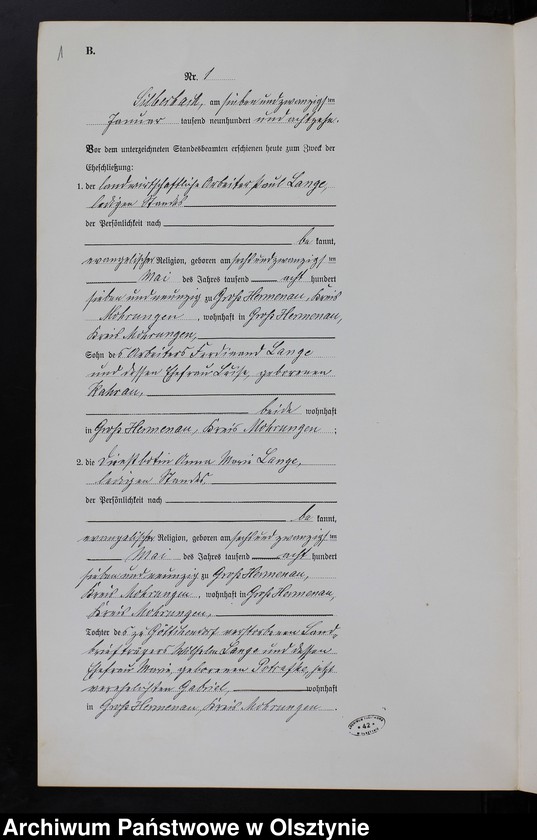 1
B.
Nr. 1
Silberbach, am siebenundzwanzigsten
Januar tausend neunhundert und achtzehn.
Vor dem unterzeichneten Standesbeamten erschienen heute zum Zweck der
Eheschließung:
1. der landwirtschaftliche Arbeiter Paul Lange,
ledigen Standes
der Persönlichkeit nach
be kannt,
evangelischer Religion, geboren am sechsundzwanzigsten
Mai des Jahres tausend acht hundert
siebenundneunzig zu Groß Hermenau, Kreis
Mohrungen, wohnhaft in Groß Hermenau,
Kreis Mohrungen,
Sohn des Arbeiters Ferdinand Lange
und dessen Ehefrau Luise, geborenen
beide wohnhaft
in Groß Hermenau, Kreis Mohrungen;
2. die Dienstbotin Anna Marie Lange,
ledigen Standes
der Persönlichkeit nach
be kannt,
evangelischer Religion, geboren am sechsundzwanzigsten
Mai des Jahres tausend acht hundert
siebenundneunzig zu Groß Hermenau,
Kreis Mohrungen, wohnhaft in Groß Hermenau,
Kreis Mohrungen,
Tochter des zu verstorbenen Land-
briefträgers Wilhelm Lange und dessen
Ehefrau Marie, geborenen jetzt
verehelichten Gabriel, wohnhaft
in Groß Hermenau, Kreis Mohrungen.
42
Archiwum Państwowe w Olsztynie